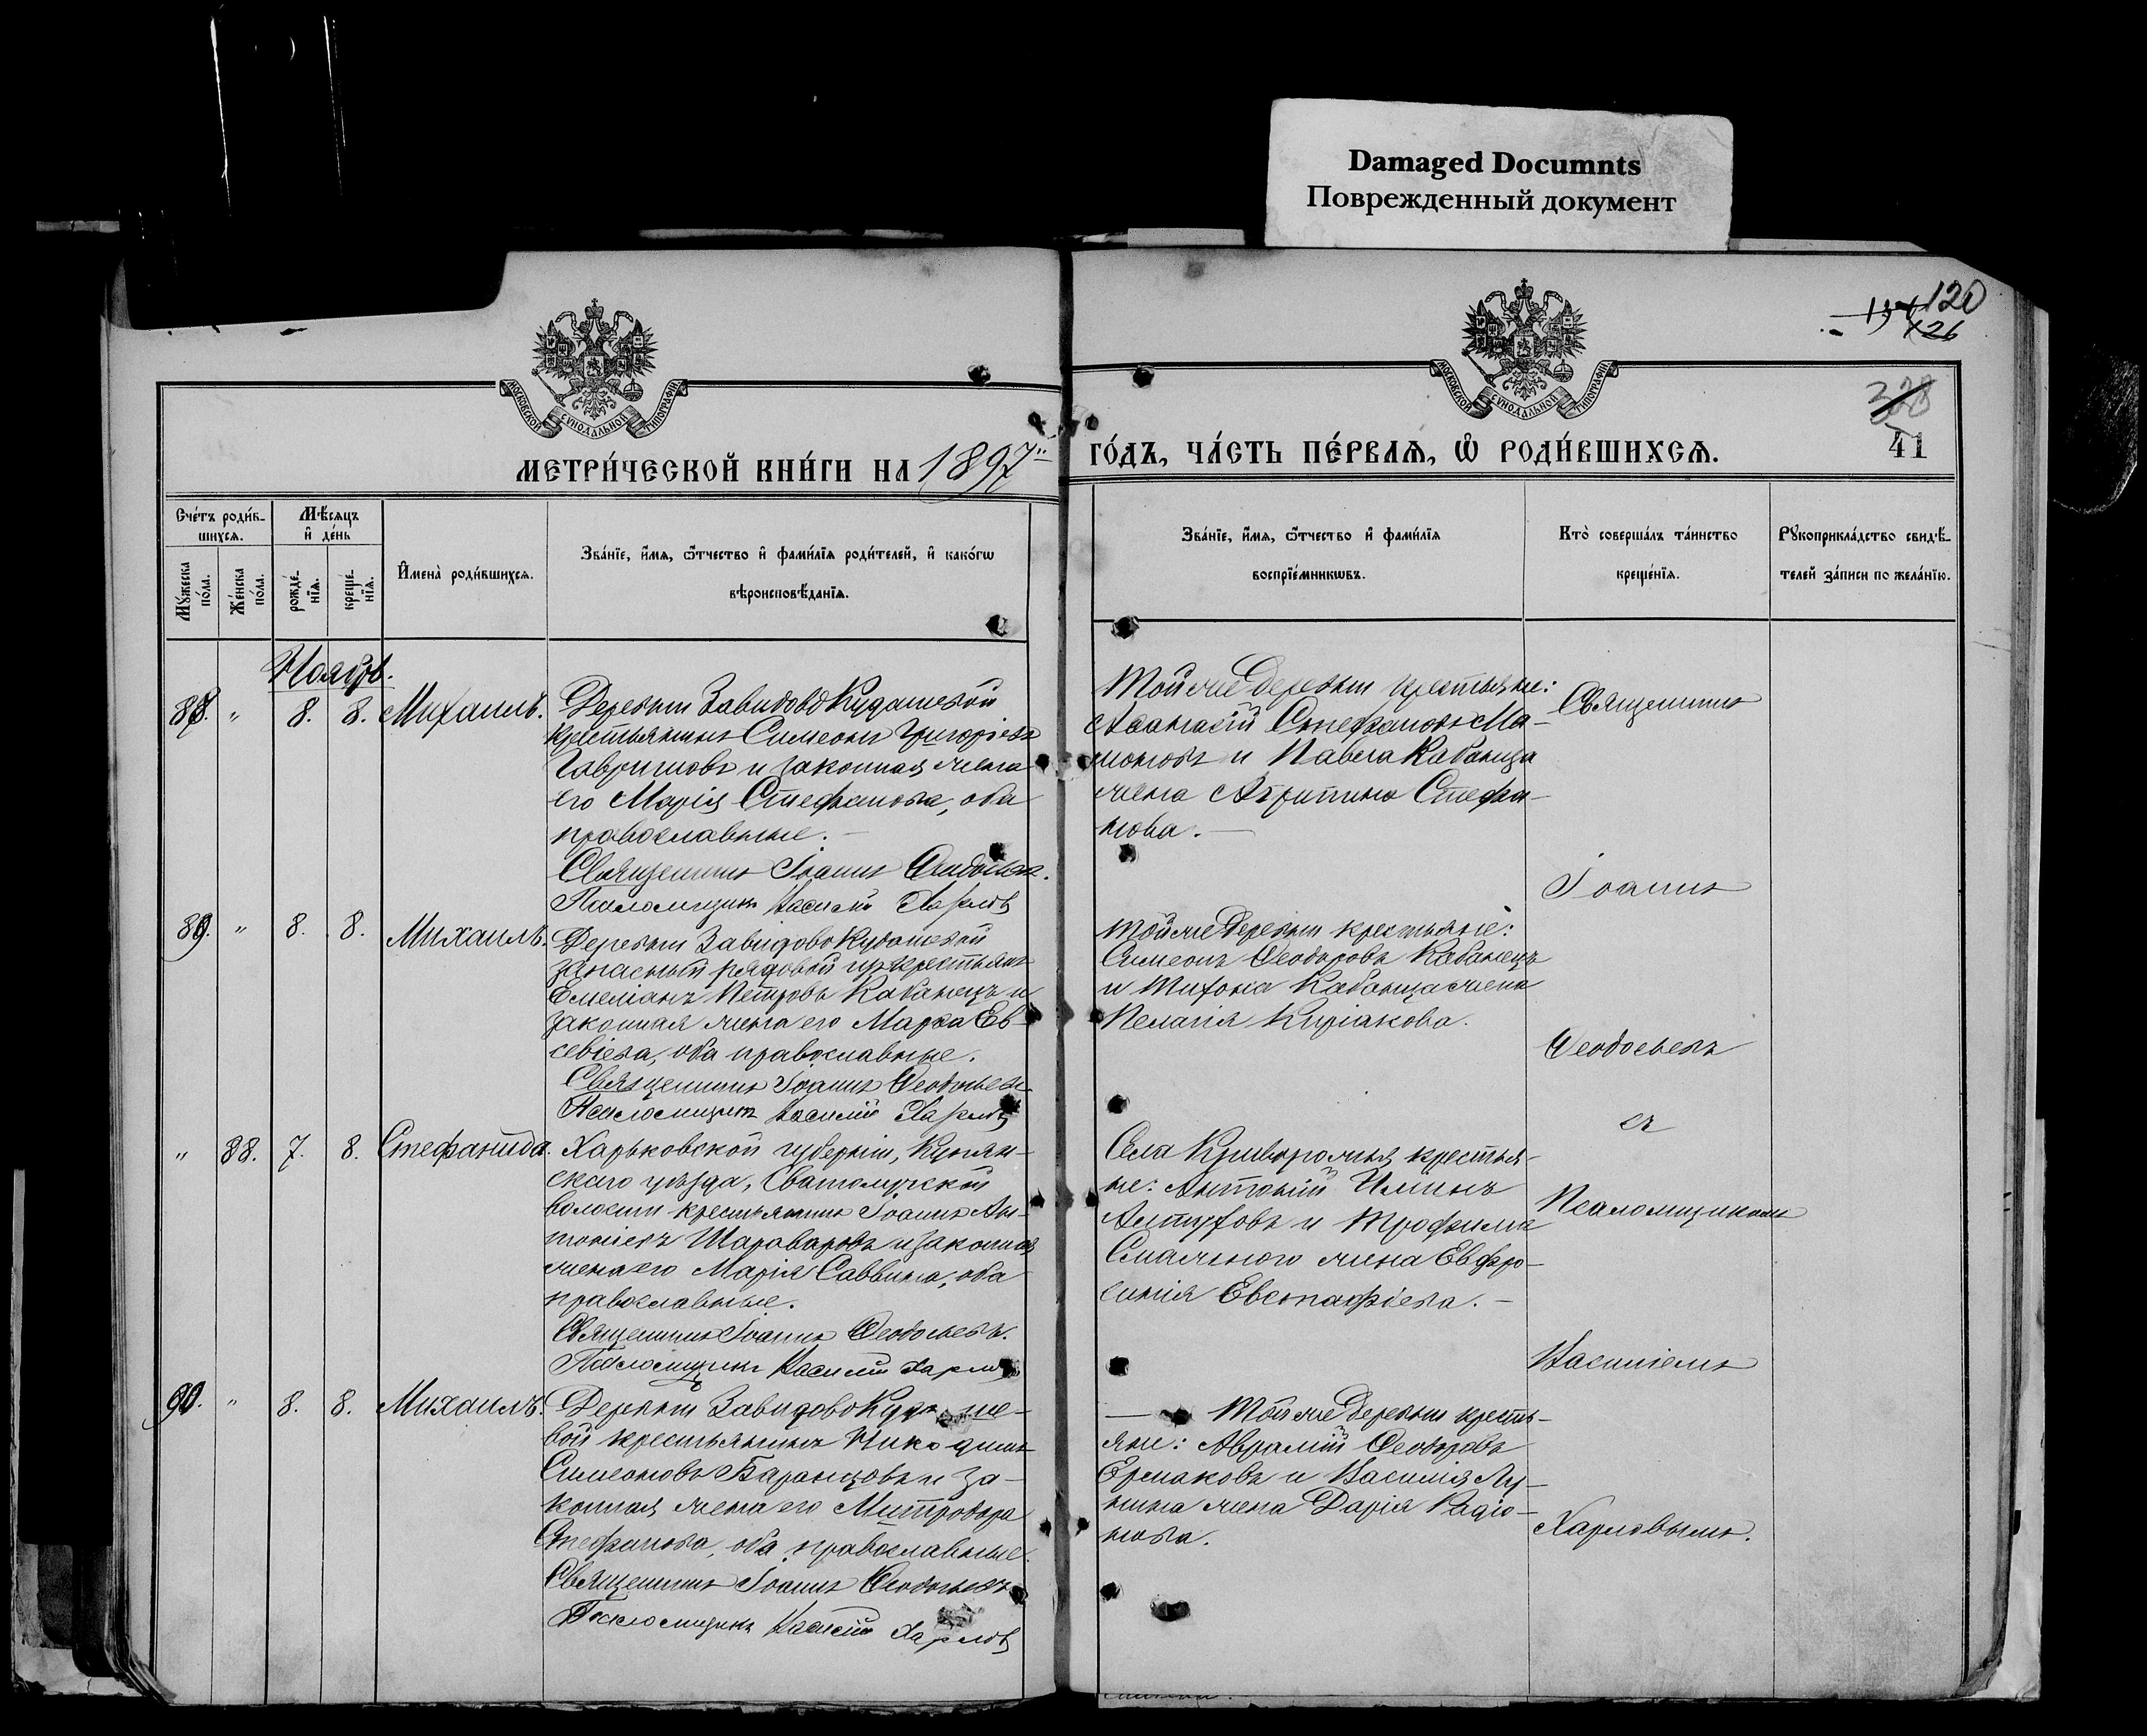 Damaged Documnts
Поврежденный документ
120
126
328
41
МОСКОВСКОЙ СѴНОДАЛЬНОЙ ТИПОГРАФІИ
МОСКОВСКОЙ СѴНОДАЛЬНОЙ ТИПОГРАФІИ
МЕТРИ́ЧЕСКОЙ КНИ́ГИ НА 1897й ГО́ДЪ, ЧА́СТЬ ПЕ́РВАѦ, Ѡ҆ РОДИ́ВШИХСѦ.
Сче́тъ роди́в-
шихсѧ.
Мꙋ́жеска по́ла.
Же́нска по́ла.
Мѣ́сѧцъ
и҆ де́нь
рожде́-
нїѧ.
креще́-
нїѧ.
И҆мена̀ роди́вшихсѧ.
Зва́нїе, и҆́мѧ, ѻ҆́тчество и҆ фами́лїѧ роди́телей, и҆ како́гѡ
вѣроисповѣ́данїѧ.
Зва́нїе, и҆́мѧ, ѻ҆́тчество и҆ фами́лїѧ
воспрїе́мникѡвъ.
Кто̀ соверша́лъ та́инство
креще́нїѧ.
Рꙋкоприкла́дство свидѣ́-
телей за́писи по жела́нїю.
Ноябрь.
88. " 8. 8. Михаилъ.
Деревни Завидово Кудашевой
крестьянинъ Симеонъ Григоріевъ
Гавришовъ и законная жена
его Марія Стефанова, оба
православные.
Священникъ Іоаннъ Ѳеодосьевъ.
Псаломщикъ Василій Харловъ
Той же деревни крестьяне:
Аѳанасій Стефановъ Ма-
моновъ и Павла Кабанца
жена Агрипина Стефа-
нова.
89. " 8. 8. Михаилъ.
Деревни Завидово Кудашевой
запасный рядовой изъ крестьянъ
Емеліанъ Петровъ Кабанецъ и
законная жена его Марѳа Ев-
севіева, оба православные.
Священникъ Іоаннъ Ѳеодосьевъ
Псаломщикъ Василій Харловъ
Той же деревни крестьяне:
Симеонъ Ѳеодоровъ Кабанецъ
и Тихона Кабанца жена
Пелагія Киріакова.
" 88. 7. 8. Стефанида.
Харьковской губерніи, Купян-
скаго уѣзда, Сватолучской
волости крестьянинъ Іоаннъ Ан-
тоніевъ Шароваровъ и законная
жена его Марія Саввина, оба
православные.
Священникъ Іоаннъ Ѳеодосьевъ.
Псаломщикъ Василій Харловъ
Села Криворожья крестья-
не: Антоній Ильинъ
Алтуховъ и Трофима
Смального жена Евфро-
синія Евстафіева.
90. " 8. 8. Михаилъ.
Деревни Завидово Кудаше-
вой крестьянинъ Никодимъ
Симеоновъ Баранцовъ и за-
конная жена его Митродора
Стефанова, оба православные.
Священникъ Іоаннъ Ѳеодосьевъ
Псаломщикъ Василій Харловъ
Той же деревни кресть-
яне: Аврамій Ѳеодоровъ
Ермаковъ и Василія Лу-
нина жена Дарія Радіо-
нова.
Священникъ
Іоаннъ
Ѳеодосьевъ
съ
Псаломщикомъ
Василіемъ
Харловымъ.